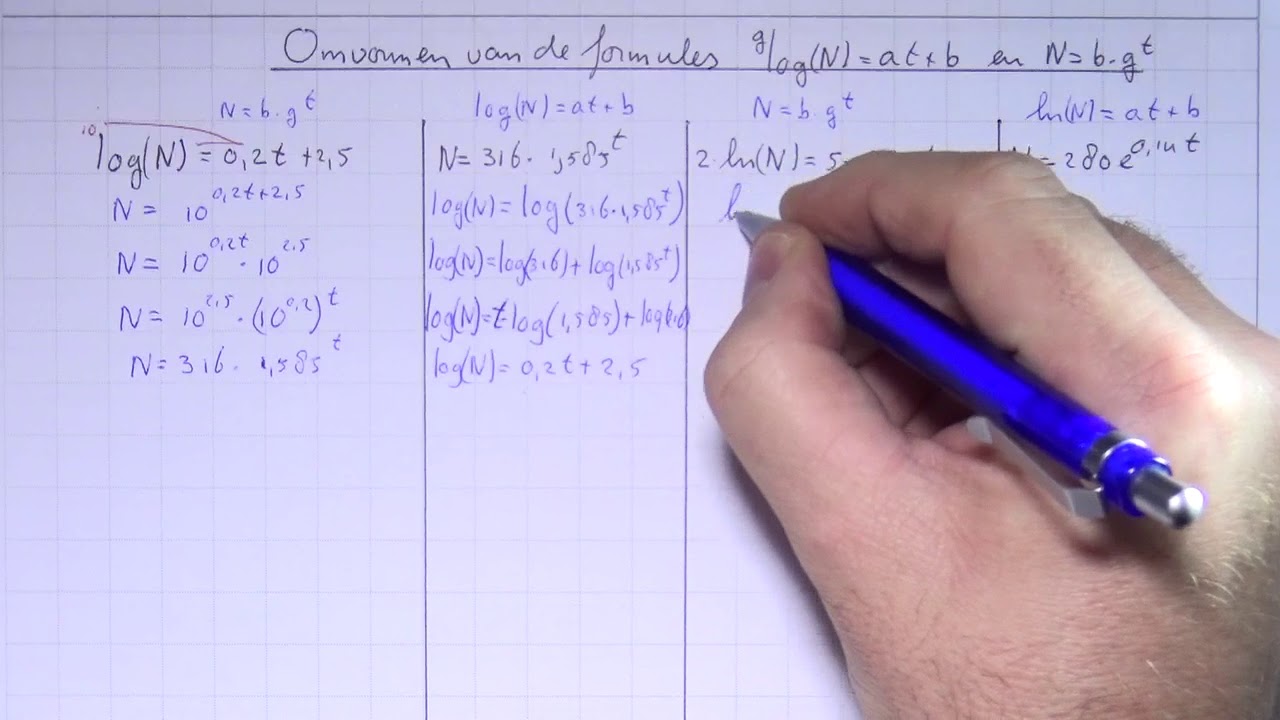 Omvormen van de formules ᵍlog(N) = at + b en N = b·gᵗ
N = b·gᵗ
¹⁰log(N) = 0,2t + 2,5
N = 10^0,2t+2,5
N = 10^0,2t · 10^2,5
N = 10^2,5 · (10^0,2)^t
N = 316 · 1,585^t
log(N) = at + b
N = 316 · 1,585^t
log(N) = log(316·1,585^t)
log(N) = log(316) + log(1,585^t)
log(N) = t log(1,585) + log(316)
log(N) = 0,2t + 2,5
N = b·gᵗ
2·ln(N) = 5
ln(N) = at + b
= 280e^0,14t